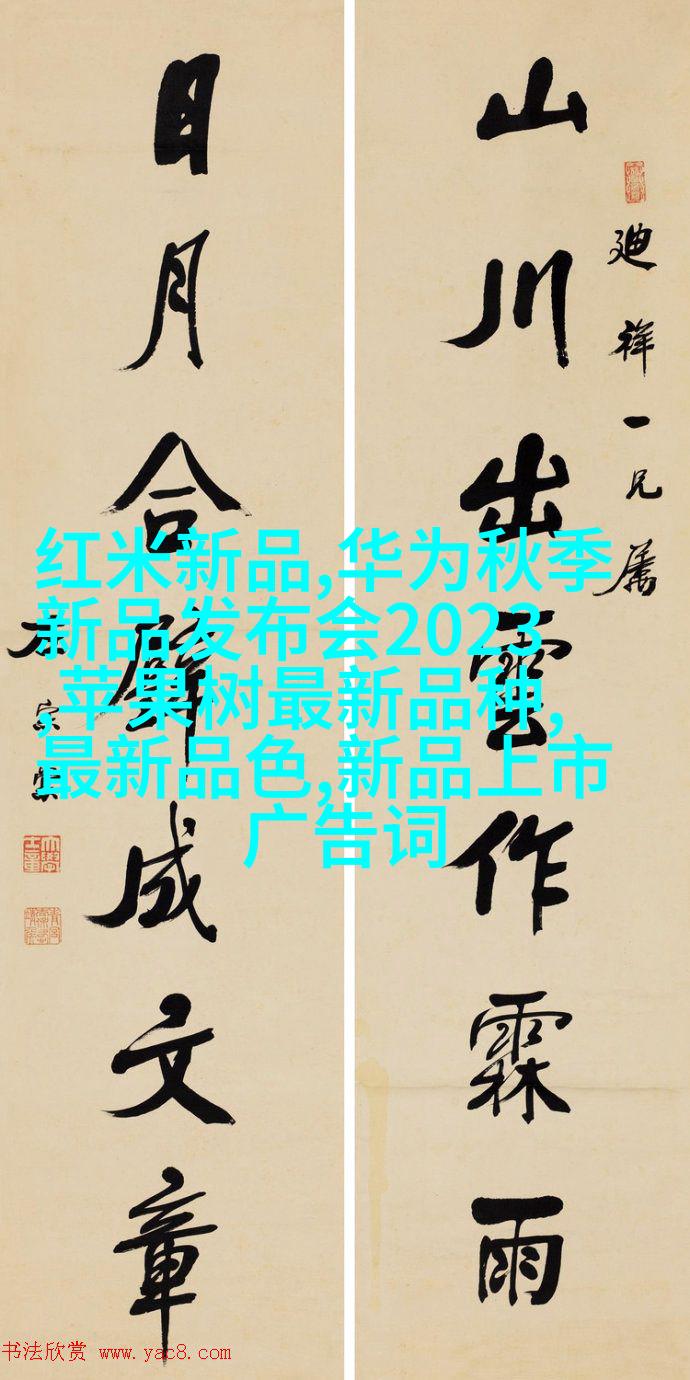 廸祥一兄属
山川出雲作霖雨
日月合璧成文章
左宗棠
红米新品,华为秋季
新品发布会2023
,苹果树最新品种,
最新品色,新品上市
广告词
书法欣赏 www.yac8.com